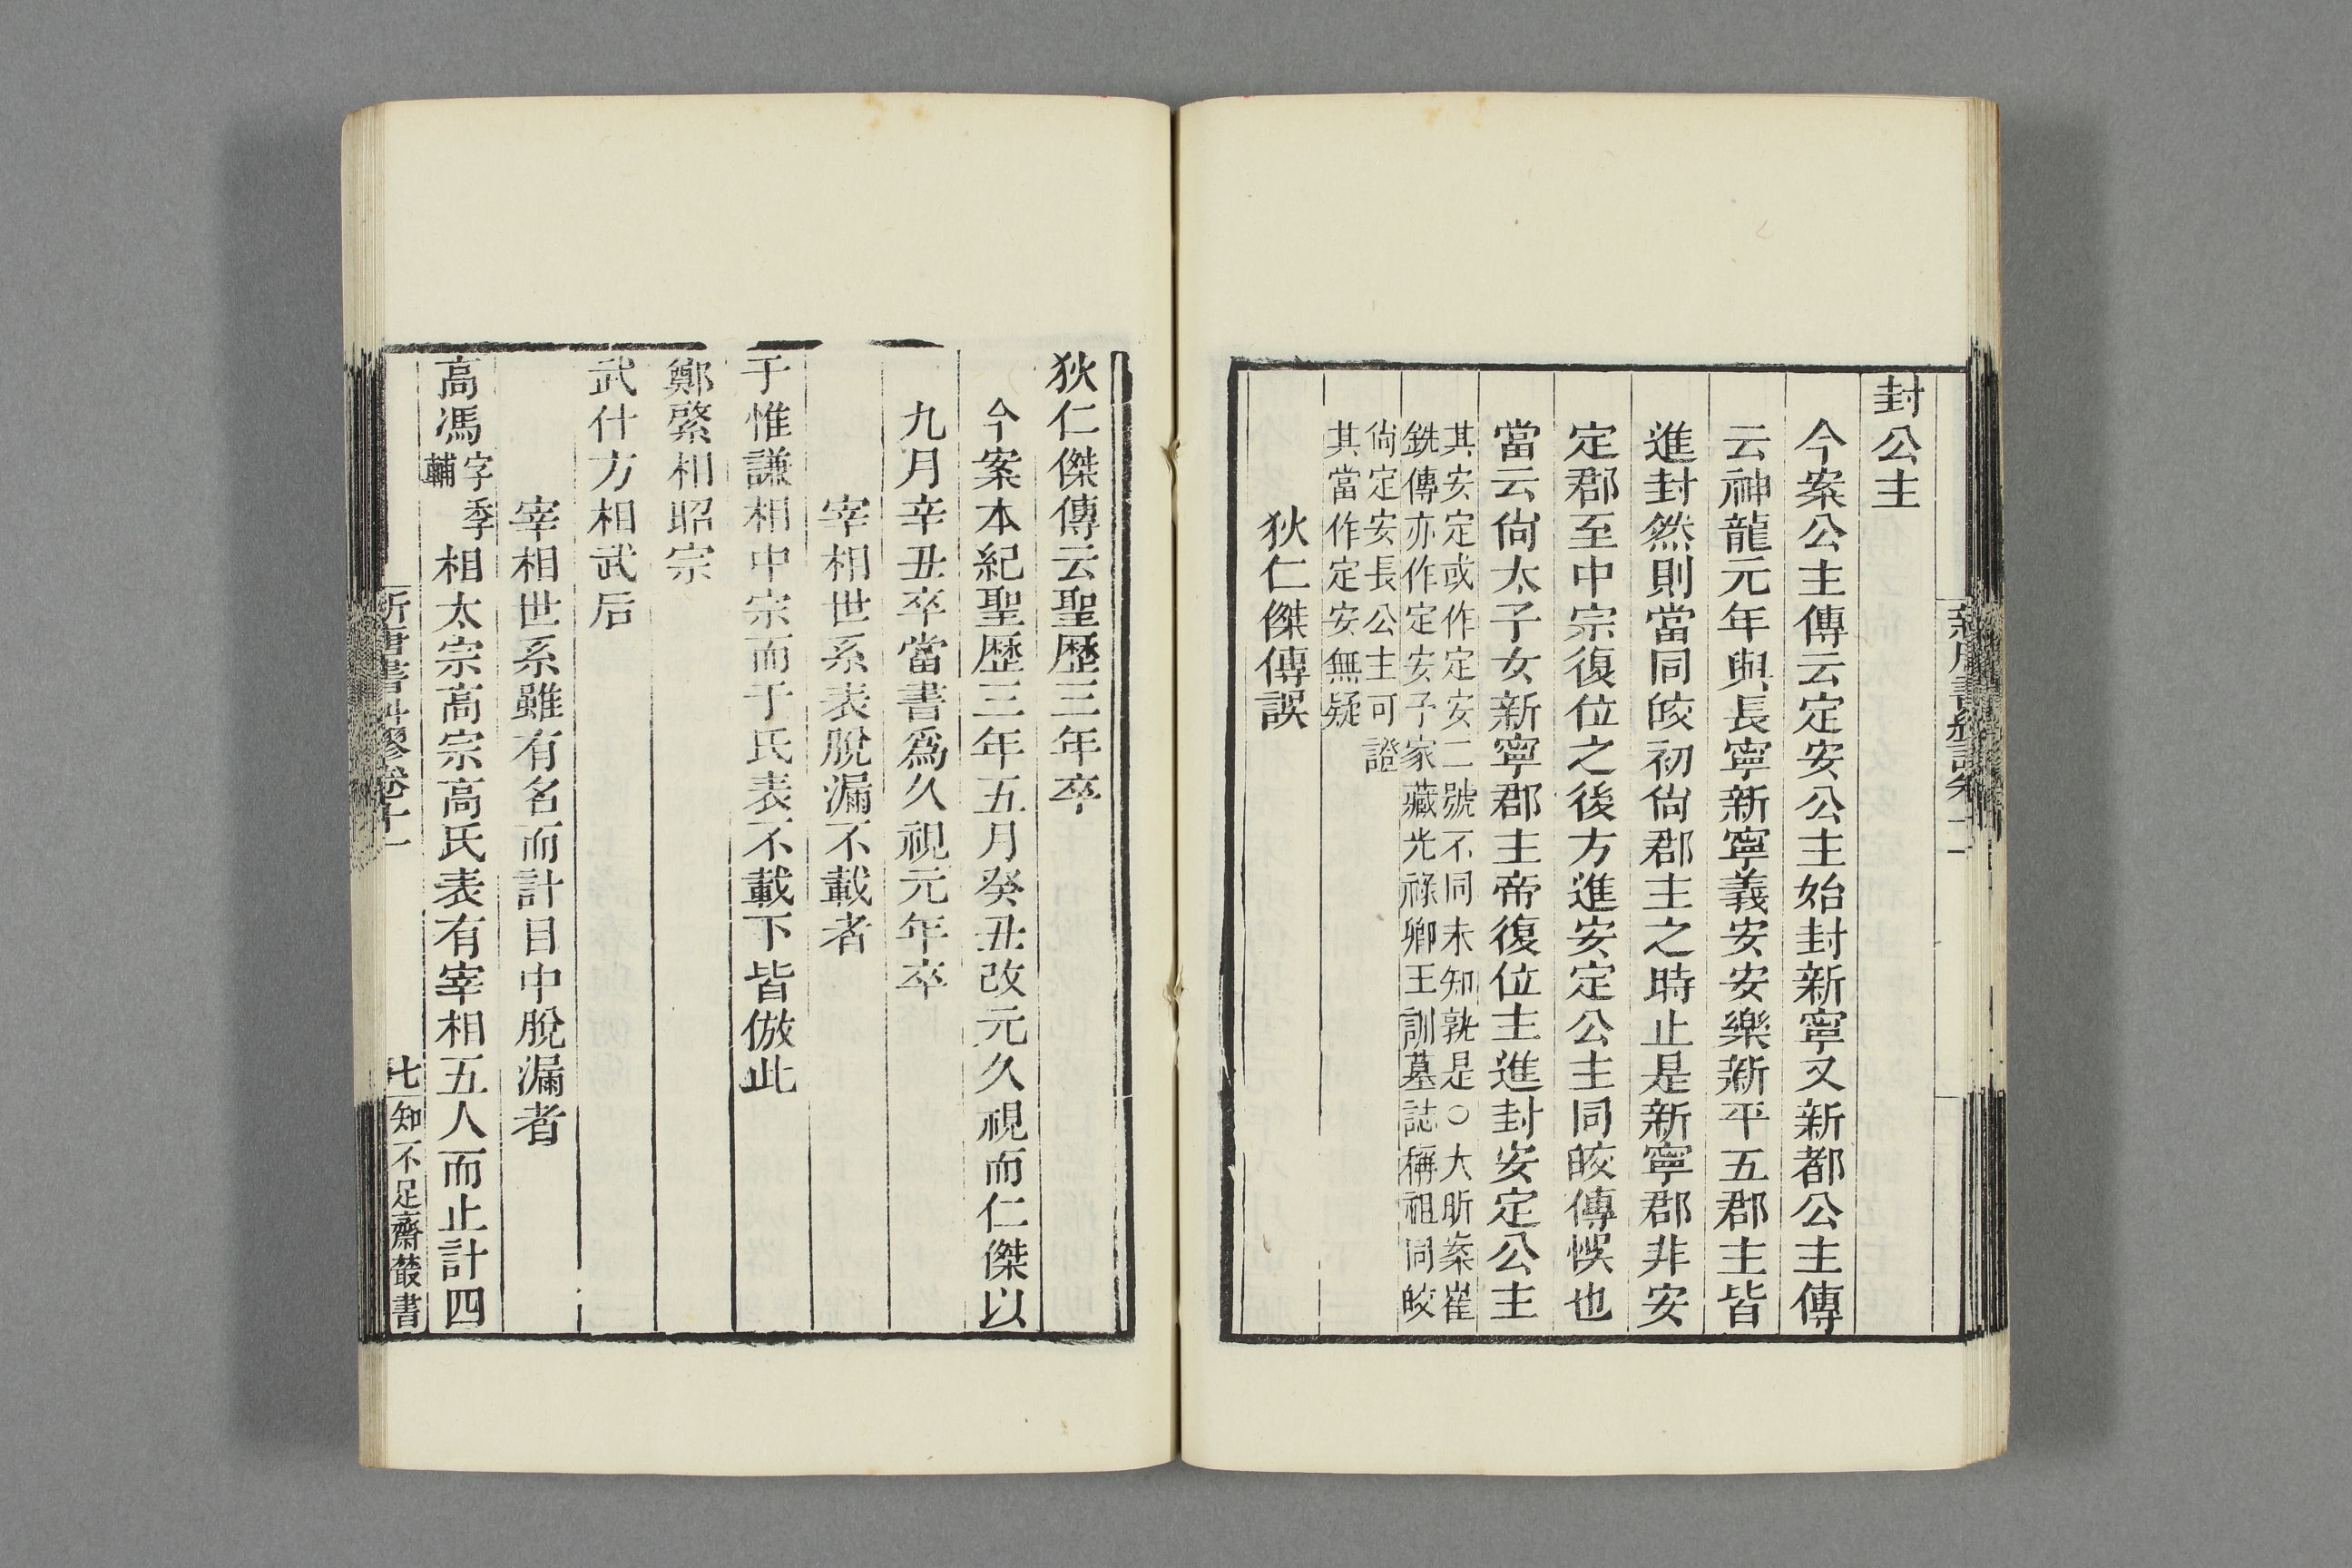 封公主
今案公主傳云定安公主始封新寧又新都公主傳
云神龍元年與長寧新寧義安安樂新平五郡主皆
進封然則當同皎初尙郡主之時止是新寧郡非安
定郡至中宗復位之後方進安定公主同皎傳悞也
當云尙太子女新寧郡主帝復位主進封安定公主
其安定或作定安二號不同未知孰是○大昕案崔
銑傳亦作定安予家藏光祿卿王訓墓誌稱祖同皎
尙定安長公主可證
其當作定安無疑
狄仁傑傳誤
狄仁傑傳云聖歷三年卒
今案本紀聖歷三年五月癸丑改元久視而仁傑以
九月辛丑卒當書爲久視元年卒
宰相世系表脫漏不載者
于惟謙相中宗而于氏表不載下皆倣此
鄭綮相昭宗
武什方相武后
宰相世系雖有名而計目中脫漏者
高馮字季輔相太宗高宗高氏表有宰相五人而止計四
七
知不足齋叢書